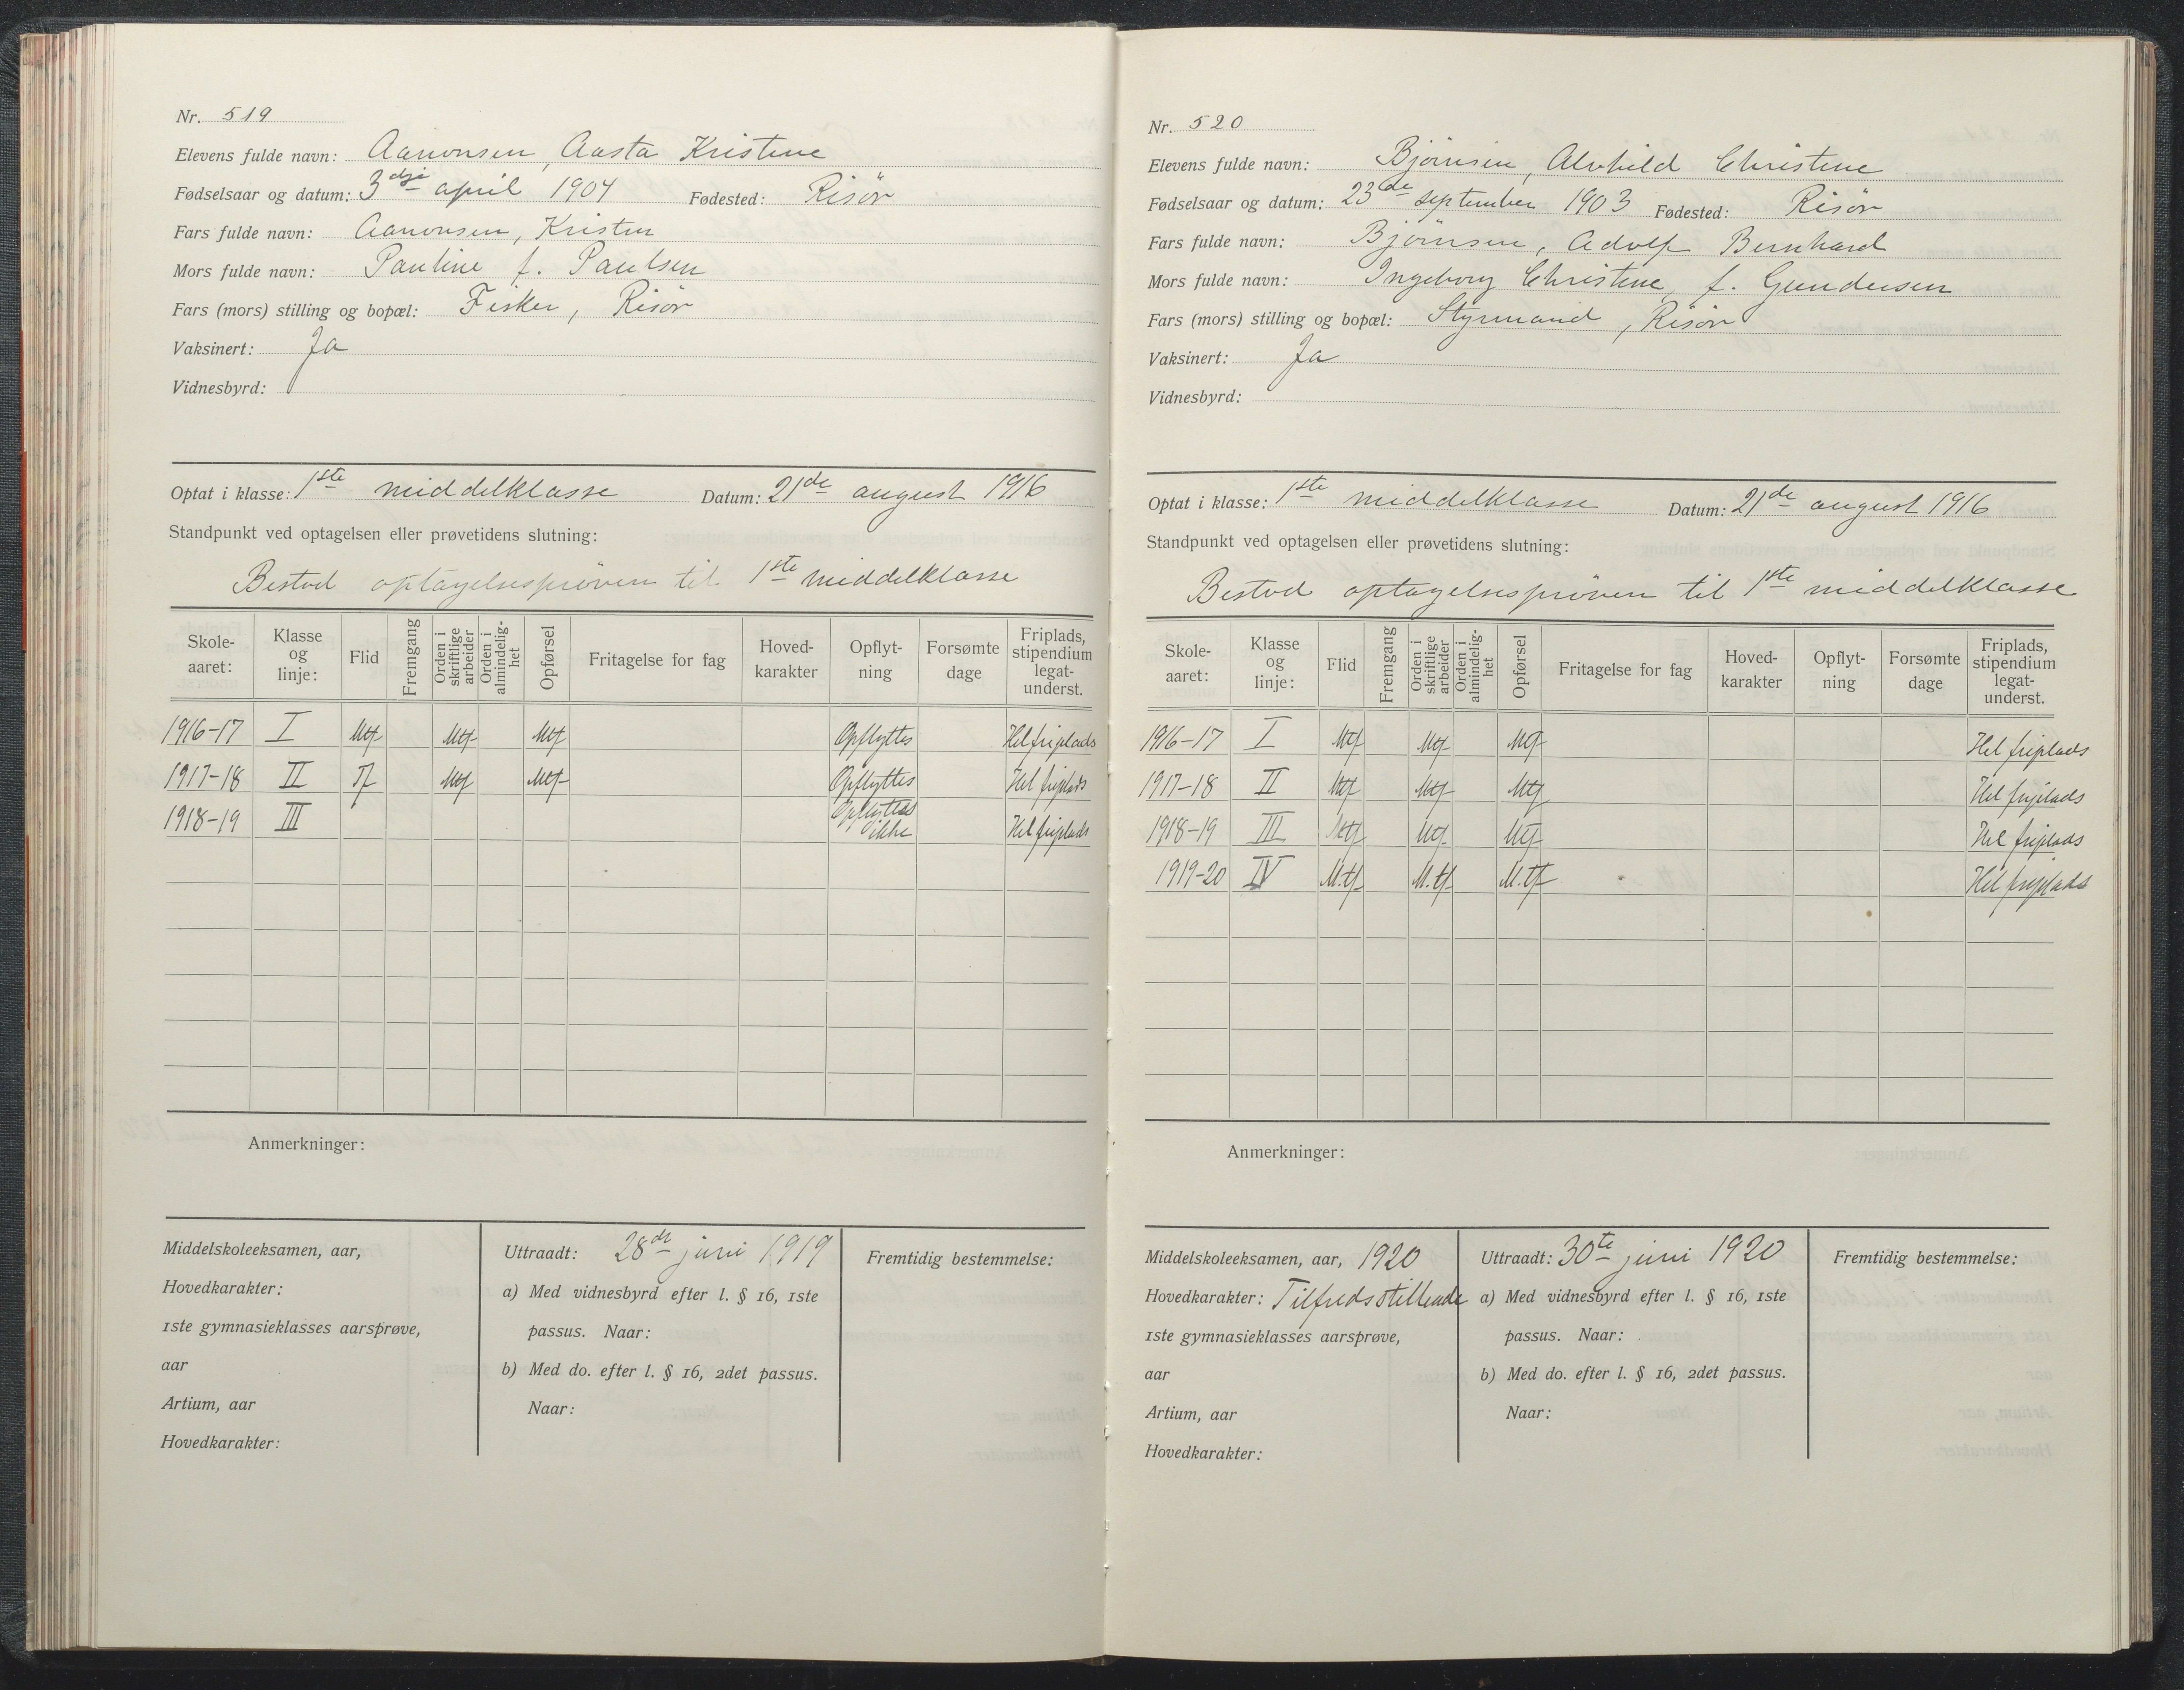 Nr. 519
Elevens fulde navn: Aanonsen, Aasta Kristine
Fødselsaar og datum: 3dje april 1904 Fødested: Risör
Fars fulde navn: Aanonsen, Kristen
Mors fulde navn: Pauline f. Paulsen
Fars (mors) stilling og bopæl: Fisker, Risör
Vaksinert: Ja
Vidnesbyrd:
Optat i klasse: 1ste middelklasse Datum: 21de august 1916
Standpunkt ved optagelsen eller prøvetidens slutning:
Bestod optagelsespröven til 1ste middelklasse
Skole-aaret: Klasse og linje: Flid Fremgang Orden i skriftlige arbeider Orden i almindelig-het Opførsel Fritagelse for fag Hoved-karakter Opflyt-ning Forsømte dage Friplads, stipendium legat-underst.
1916-17 I Mtf Mtf Mtf Opflyttes Hel friplads
1917-18 II Tf Mtf Mtf Opflyttes Hel friplads
1918-19 III Opflyttes ikke Hel friplads
Anmerkninger:
Middelskoleeksamen, aar,
Hovedkarakter:
1ste gymnasieklasses aarsprøve,
aar
Artium, aar
Hovedkarakter:
Uttraadt: 28de juni 1919
a) Med vidnesbyrd efter l. § 16, 1ste
passus. Naar:
b) Med do. efter l. § 16, 2det passus.
Naar:
Fremtidig bestemmelse:
Nr. 520
Elevens fulde navn: Bjørnsen, Alvhild Christine
Fødselsaar og datum: 23de september 1903 Fødested: Risör
Fars fulde navn: Bjørnsen, Adolf Bernhard
Mors fulde navn: Ingeborg Christine, f. Gundersen
Fars (mors) stilling og bopæl: Styrmand, Risör
Vaksinert: Ja
Vidnesbyrd:
Optat i klasse: 1ste middelklasse Datum: 21de august 1916
Standpunkt ved optagelsen eller prøvetidens slutning:
Bestod optagelsespröven til 1ste middelklasse
Skole-aaret: Klasse og linje: Flid Fremgang Orden i skriftlige arbeider Orden i almindelig-het Opførsel Fritagelse for fag Hoved-karakter Opflyt-ning Forsømte dage Friplads, stipendium legat-underst.
1916-17 I Mtf Mtf Mtf Hel friplads
1917-18 II Mtf Mtf Mtf Hel friplads
1918-19 III Mtf Mtf Mtf Hel friplads
1919-20 IV M.tf M.tf M.tf Hel friplads
Anmerkninger:
Middelskoleeksamen, aar, 1920
Hovedkarakter: Tilfredsstillende
1ste gymnasieklasses aarsprøve,
aar
Artium, aar
Hovedkarakter:
Uttraadt: 30te juni 1920
a) Med vidnesbyrd efter l. § 16, 1ste
passus. Naar:
b) Med do. efter l. § 16, 2det passus.
Naar:
Fremtidig bestemmelse: